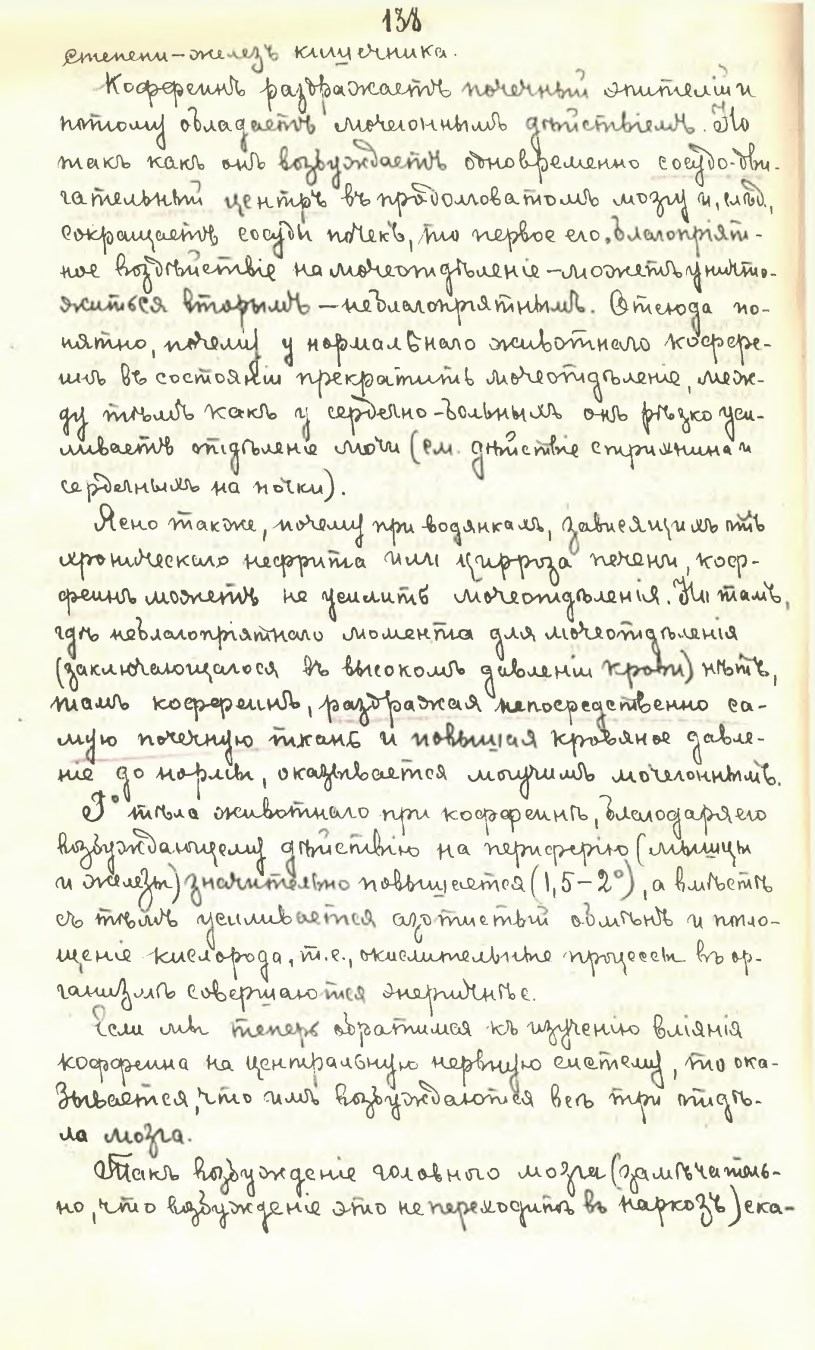 138
степени – железъ кишечника.
Коффеинъ раздражаетъ почечный эпителій и
потому обладаетъ мочегоннымъ дѣйствіемъ. Но
такъ какъ онъ возбуждаетъ одновременно сосудо-дви-
гательный центръ въ продолговатомъ мозгу и, слѣд.,
сокращаетъ сосуды почекъ, то первое его, благопріят-
ное воздѣйствіе на мочеотдѣленіе – можетъ уничто-
житься вторымъ – неблагопріятнымъ. Отсюда по-
нятно, почему у нормальнаго животнаго коффе-
инъ въ состояніи прекратить мочеотдѣленіе, меж-
ду тѣмъ какъ у сердечно-больныхъ онъ рѣзко уси-
ливаетъ отдѣленіе мочи (см. дѣйствіе стрихнина и
сердечныхъ на почки).
Ясно также, почему при водянкахъ, зависящихъ отъ
хроническаго нефрита или цирроза печени, коф-
феинъ можетъ не усилить мочеотдѣленія. Но тамъ,
гдѣ неблагопріятнаго момента для мочеотдѣленія
(заключающагося въ высокомъ давленіи крови) нѣтъ,
тамъ коффеинъ, раздражая непосредственно са-
мую почечную ткань и повышая кровяное давле-
ніе до нормы, оказывается могучимъ мочегоннымъ.
T° тѣла животнаго при коффеинѣ, благодаря его
возбуждающему дѣйствію на периферію (мышцы
и железы) значительно повышается (1,5 – 2°), а вмѣстѣ
съ тѣмъ усиливается азотистый обмѣнъ и погло-
щеніе кислорода, т.е., окислительные процессы въ ор-
ганизмѣ совершаются энергичнѣе.
Если мы теперь обратимся къ изученію вліянія
коффеина на центральную нервную систему, то ока-
зывается, что имъ возбуждаются всѣ три отдѣ-
ла мозга.
Такъ возбужденіе головного мозга (замѣчатель-
но, что возбужденіе это не переходитъ въ наркозъ) ска-